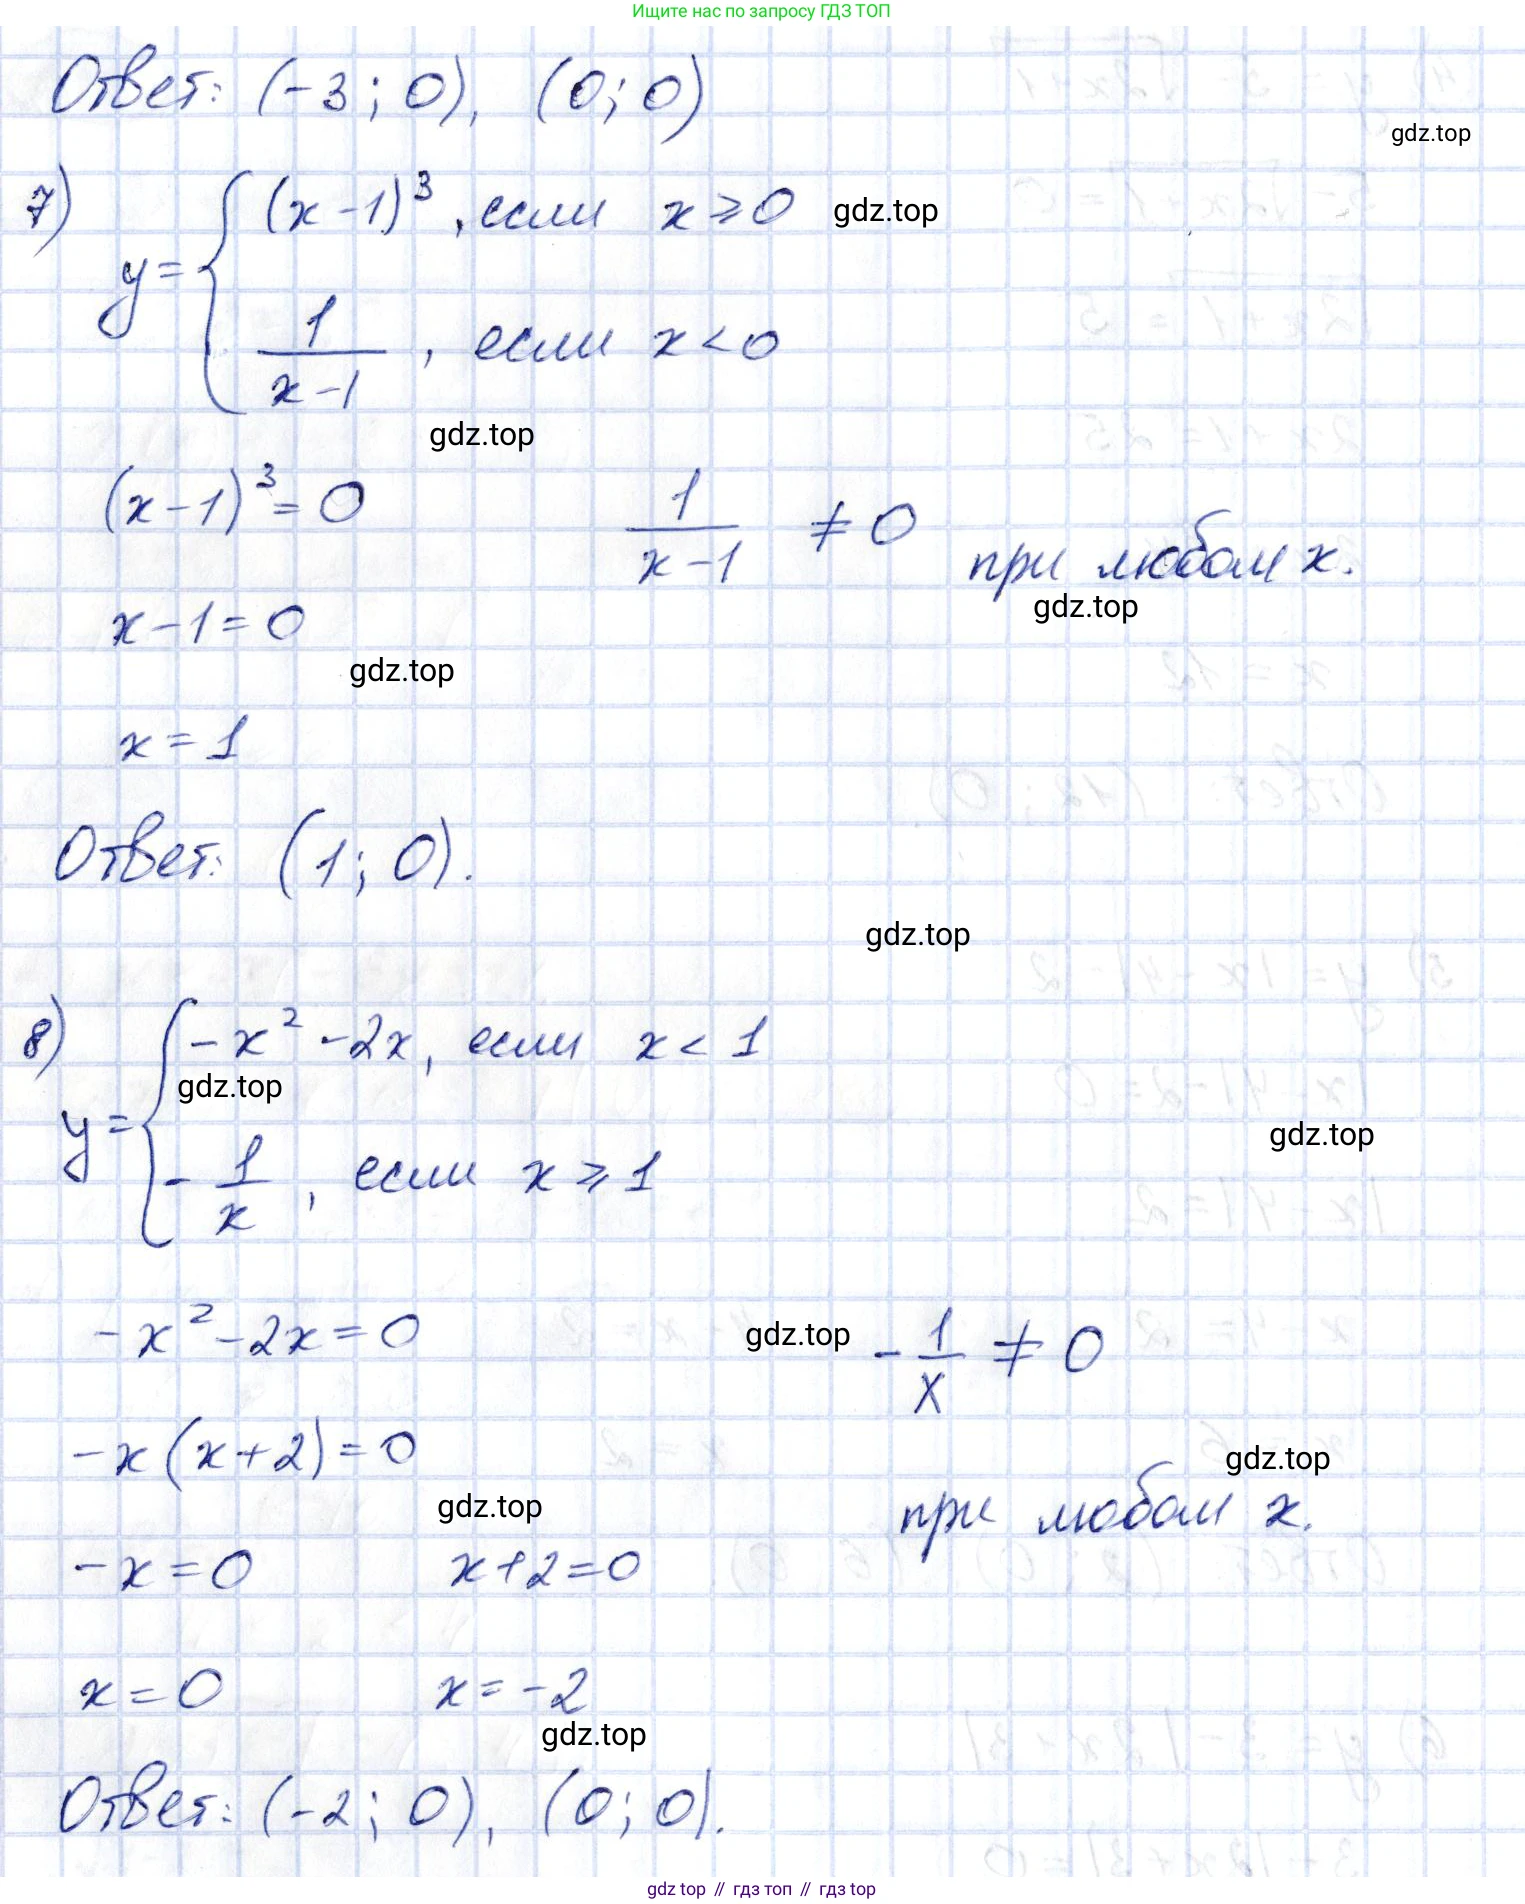 Ищите нас по запросу ГДЗ ТОП
Ответ: (-3; 0), (0; 0)
gdz.top
7) y = { (x-1)³, если x ⩾ 0
gdz.top
1/(x-1), если x < 0
gdz.top
(x-1)³ = 0    1/(x-1) ≠ 0 при любом x.
gdz.top
x-1=0
gdz.top
x = 1
Ответ: (1; 0).
gdz.top
8) y = { -x² - 2x, если x < 1
gdz.top
gdz.top
- 1/x, если x ⩾ 1
-x² - 2x = 0    - 1/x ≠ 0
gdz.top
-x(x+2)=0
gdz.top
gdz.top
при любом x.
-x = 0    x+2=0
x = 0    x = -2
gdz.top
Ответ: (-2; 0), (0; 0).
gdz top // гдз топ // гдз top